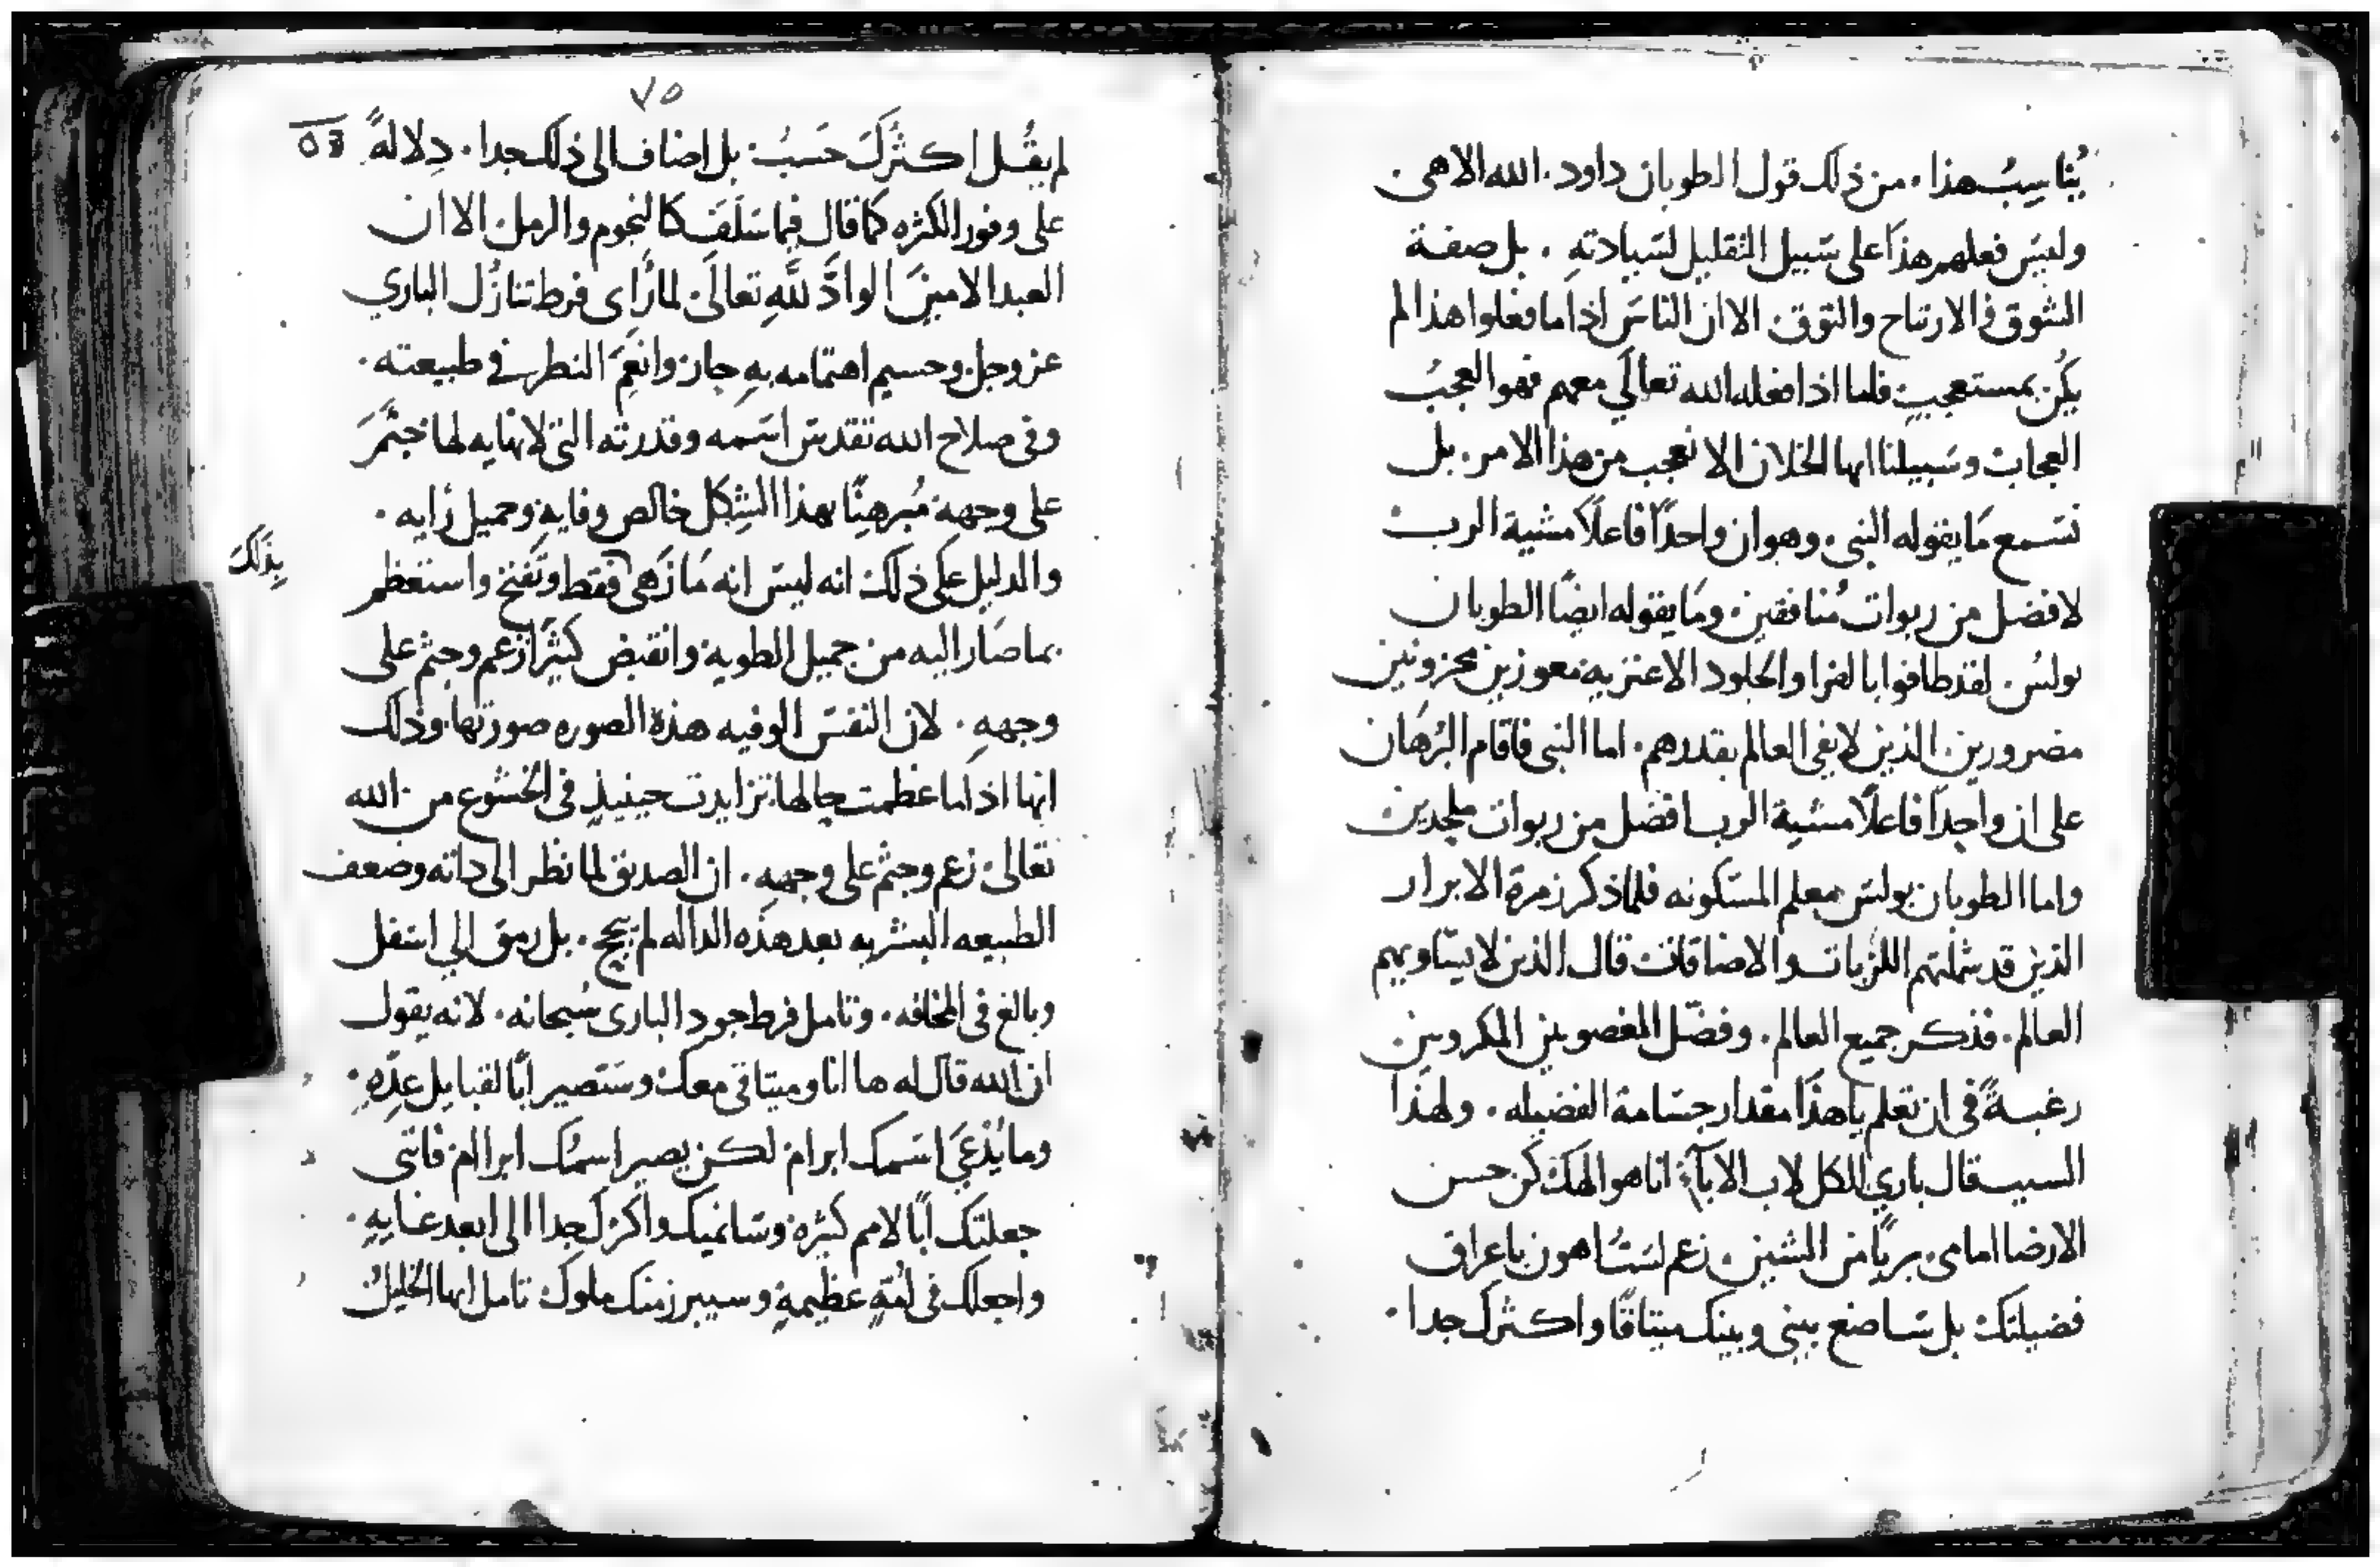 يُناسِبُ هذا. من ذلك قول الطوبان داود. الله الاهى
وليسَ فعلهم هذا على سَبيل التقليل لسَيادتهِ. بل صفة
الشوق فالارتياح والتوق. الا ان الناسَ اذا ما فعلوا هذا لم
يكُن بمستعجبٍ فلما اذا فعله الله تعالَي معهم فهو العجبُ
العجاب وسَبيلنا ايها الخلان الا نعجب من هذا الامر. بل
نسَمع مَا يقوله النبى. وهو ان واحدًا فاعلًا مشية الرب
لافضل من ربوات مُنافقين. ومَا يقوله ايضًا الطوبان
بولسُ. لقد طافوا بالفرا والجلود الاعنزيه معوزين محزونين
مضرورين. الذين لا يفى العالم بقدرهم. اما النبى فاقام البُرهَان
على ان واحِدًا فاعلًا مشية الرب افضل من ربوات ملحدين
واما الطوبان بولسَ معلم المسَكونه فلما ذكر زمرة الابرار
الذين قد شملتهم اللزبات والاضاقات قال الذين لا يسَاويهم
العالم. فذكر جميع العالم. وفضّل المغصوبين المكروبين
رغبةً فى ان تعلم ياهذَا مقدار جسَامة الفضيله. ولهذا
السبب قال باري الكل لاب الابآءِ انا هو الهك كُن حسن
الارضا امامى. بريًا من الشين. زعم لسَتُ اهون باعراق
فضيلتك بل سَاضع بينى وبينك ميثاقًا واكثرك جدا.
٧٥
لم يقُل اكثرَكَ حَسَبُ. بل اضاف الى ذلك جدا. دِلالةً
على وفور الكثره كما قال فيما سَلَفَ كالنجوم والرمل الا ان
العبد الامينَ الوادَّ للهِ تعالَى. لما رَأى فرط تنازُل الباري
عز وجل وجسيم اهتمامه بهِ جاز وانعَمَ النظر في طبيعته.
وفى صلاح الله تقدسَ اسَمه وقدرته التى لا نهايه لها جثمَ
على وجههِ مُبرهِنًا بهذا الشِكل خالص وفايهِ وجميل رَايه.
والدليل على ذلك انه ليسَ انه مَا زَهى فقط وتفنخ واستعظم
بِذَلكَ
بما صَار اليه من جميل الطوية وانقبض كثيرًا زعم وجثم على
وجههِ. لان النفسَ الوفيه هذه الصوره صورتها. وذلك
انها اذا ما عظمت حالها تزايدت حينيذٍ فى الخشوع من الله
تعالى. زعم وجثم على وجههِ. ان الصديق لما نظر الى ذاته وضعف
الطبيعه البشريه بعد هذه الداله لم يبجح. بل رمق الي اسَفل
وبالغ فى المخافه. وتامل فرط جود البارى سُبحانه. لانه يقول
ان الله قال له ها انا وميثاقى معك وستَصير ابًا لقبايل عِدّهِ.
وما يُدعَى اسَمك ابرام لكن يصير اسمُك ابراام فاننى
جعلتك ابًا لامم كثيره وسَانميك واكثرك جدا الى ابعد غايهِ.
واجعلك فى امُةٍ عظيمةٍ وسيبرز منك ملوك تامل ايها الخليلُ